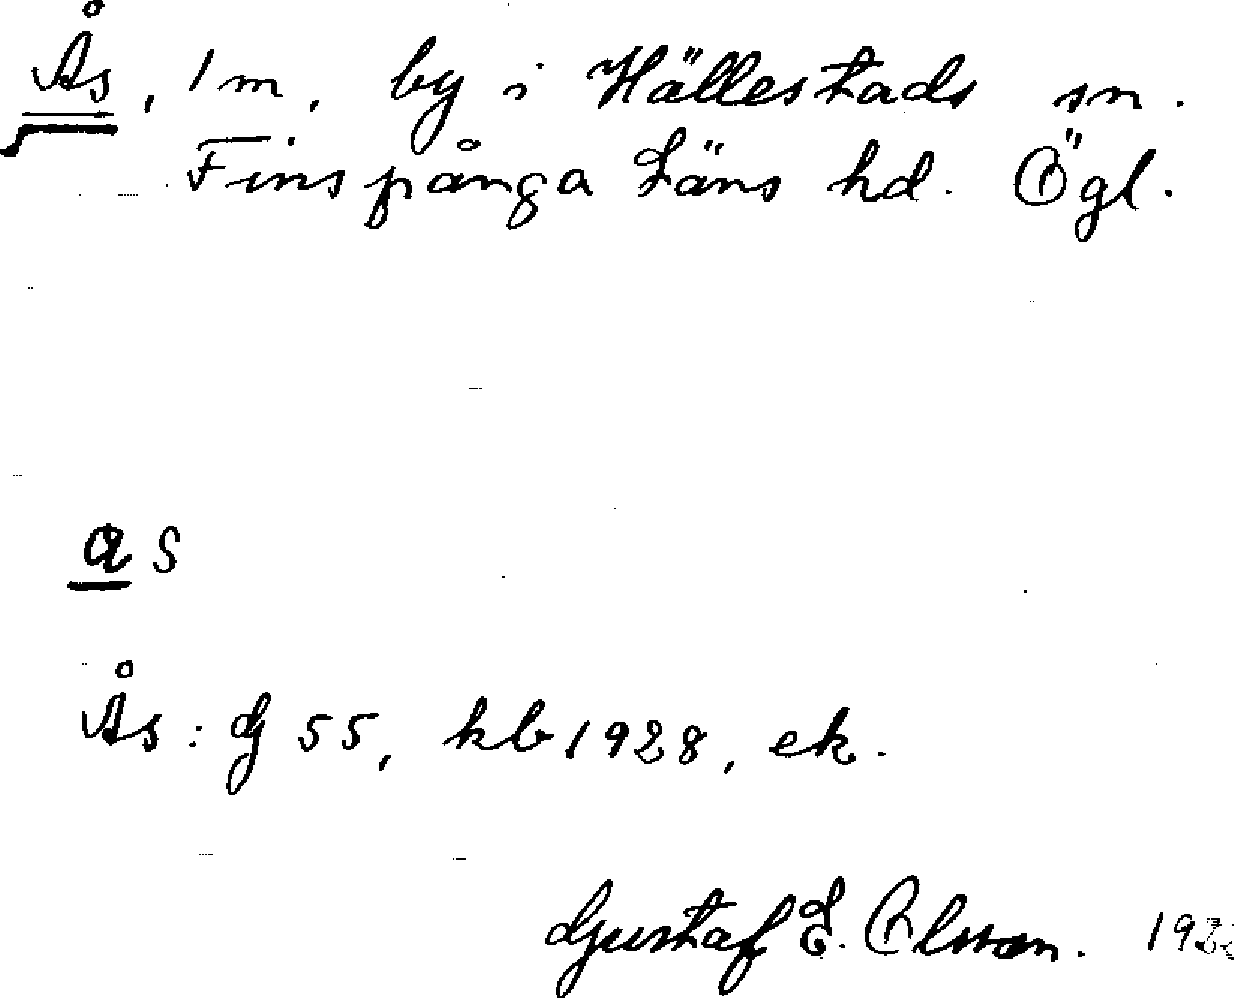 Ås, 1 m, by i Hällestads sn.
Finspånga Läns hd. Ögl.
as
Ås: dj 55, kb 1928, ek.
Gustaf E. Olsson.